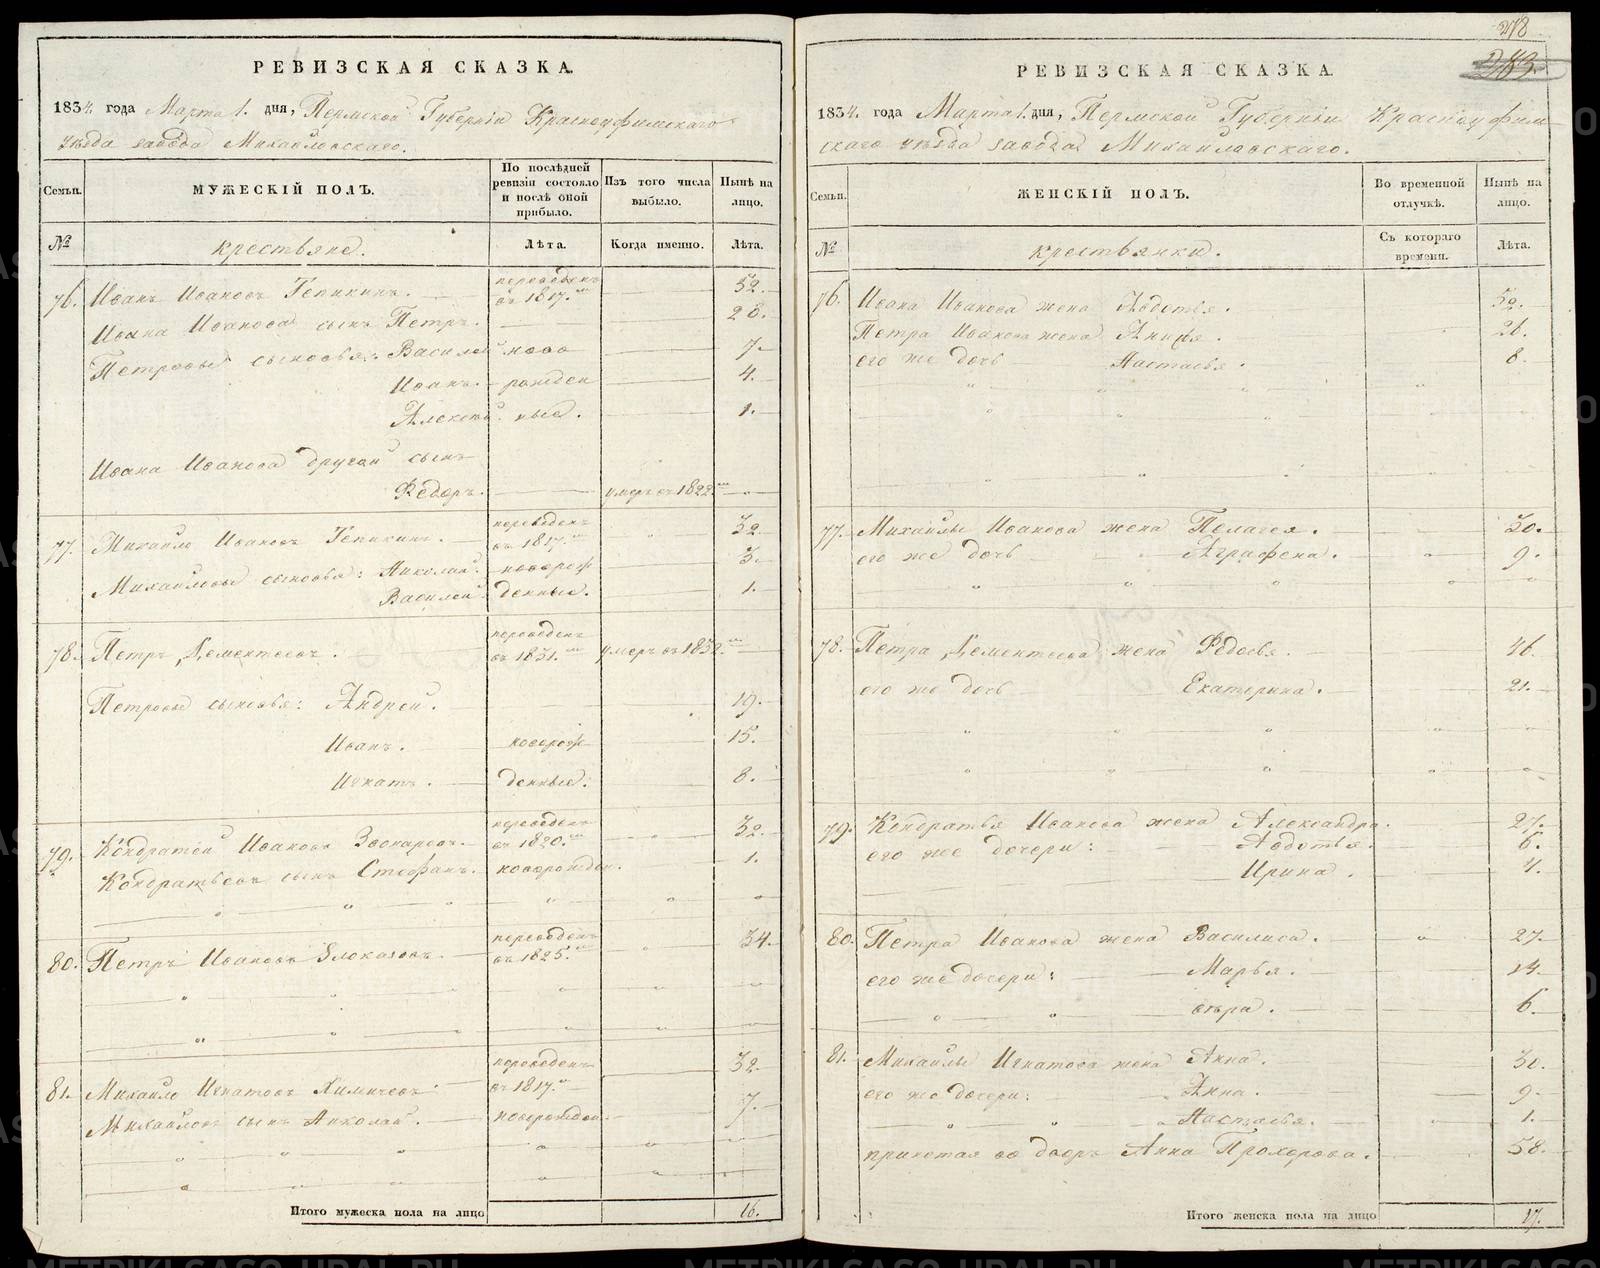 РЕВИЗСКАЯ СКАЗКА.
1834. года Марта 1. дня, Пермской Губерніи Красноуфимскаго
уѣзда завода Михайловскаго.
Семьи.
МУЖЕСКІЙ ПОЛЪ.
По послѣдней ревизіи состояло и послѣ оной прибыло.
Изъ того числа выбыло.
Нынѣ на лицо.
№
крестьяне.
Лѣта.
Когда именно.
Лѣта.
76. Иванъ Ивановъ переведенъ въ 1817. 52.
Ивана Иванова сынъ Петръ. 28.
Петровы сыновья: Василей ново 7.
Иванъ. рожден 4.
Алексѣй. ные. 1.
Ивана Иванова другой сынъ
Федоръ. умеръ въ 1822.
77. Михайло Ивановъ переведенъ въ 1817. 32.
Михайловы сыновья: Николай. новорож 3.
Василей денные. 1.
78. Петръ Дементьевъ. переведенъ въ 1831. умеръ въ 1832.
Петровы сыновья: Андрей. 19.
Иванъ. новорож 15.
Игнатъ. денные. 8.
79. Кондратей Ивановъ переведенъ въ 1820. 32.
Кондратьевъ сынъ Стефанъ. новорожден. 1.
80. Петръ Ивановъ Злоказовъ. переведенъ въ 1825. 34.
81. Михайло Игнатовъ переведенъ въ 1817. 32.
Михайловъ сынъ Николай. новорожден. 7.
Итого мужеска пола на лицо 16.
278
283.
РЕВИЗСКАЯ СКАЗКА.
1834. года Марта 1. дня, Пермской Губерніи Красноуфим
скаго уѣзда завода Михайловскаго.
Семьи.
ЖЕНСКІЙ ПОЛЪ.
Во временной отлучкѣ.
Нынѣ на лицо.
№
крестьянки.
Съ котораго времени.
Лѣта.
76. Ивана Иванова жена Авдотья. 52.
Петра Иванова жена 26.
его же дочь Настасья. 8.
77. Михайлы Иванова жена Пелагея. 30.
его же дочь Аграфена. 9.
78. Петра Дементьева жена Федосья. 46.
его же дочь Екатерина. 21.
79. Кондратья Иванова жена Александра. 27.
его же дочери: Авдотья. 6.
Ирина. 4.
80. Петра Иванова жена Василиса. 27.
его же дочери: Марья. 14.
вѣра. 6.
81. Михайлы Игнатова жена Анна. 31.
его же дочери: Анна. 9.
Настасья. 1.
принятая во дворъ Анна Прохорова. 58.
Итого женска пола на лицо 17.